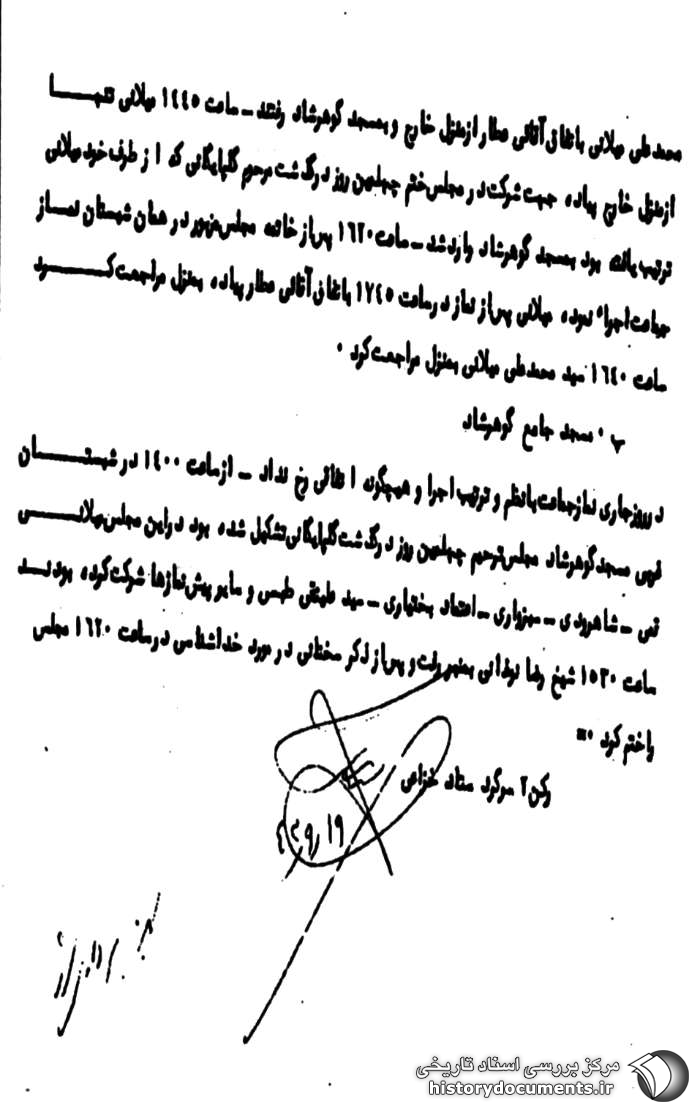 محمدعلی میلانی باتفاق آقائی عطار ازمنزل خارج و بمسجد گوهرشاد رفتند ــ ساعت ۱۴۴۵ میلانی تنهـــا
ازمنزل خارج پیاده جهت شرکت در مجلس ختم چهلمین روز درگذشت مرحوم گلپایگانی که از طرف خود میلانی
ترتیب یافته بود بمسجد گوهرشاد وارد شد ــ ساعت ۱۶۲۰ پس از خاتمه مجلس مزبور در همان شبستان نمـــاز
جماعت اجراء نموده میلانی پس از نماز در ساعت ۱۷۴۵ باتفاق آقائی عطار پیاده بمنزل مراجعت کـــرد
ساعت ۱۶۴۰ سید محمدعلی میلانی بمنزل مراجعت کرد ۰
ب ۰ مسجد جامع گوهرشاد
در روز جاری نماز جماعت با نظم و ترتیب اجرا و هیچگونه اتفاقی رخ نداد ــ از ساعت ۱۴۰۰ در شبستـــان
غربی مسجد گوهرشاد مجلس ترحیم چهلمین روز درگذشت گلپایگانی تشکیل شده بود در این مجلس میلانـــی
قمی ــ شاهرودی ــ سبزواری ــ اعتماد بختیاری ــ سید علینقی طبسی و سایر پیش نمازها شرکت کرده بودنـــد
ساعت ۱۵۳۰ شیخ رضا نوغانی بمنبر رفت و پس از ذکر سخنانی در مورد خداشناسی در ساعت ۱۶۲۰ مجلس
را ختم کرد ۰=
رکن ۲ سرگرد ستاد خزاعی
مرکز بررسی اسناد تاریخی
historydocuments.ir